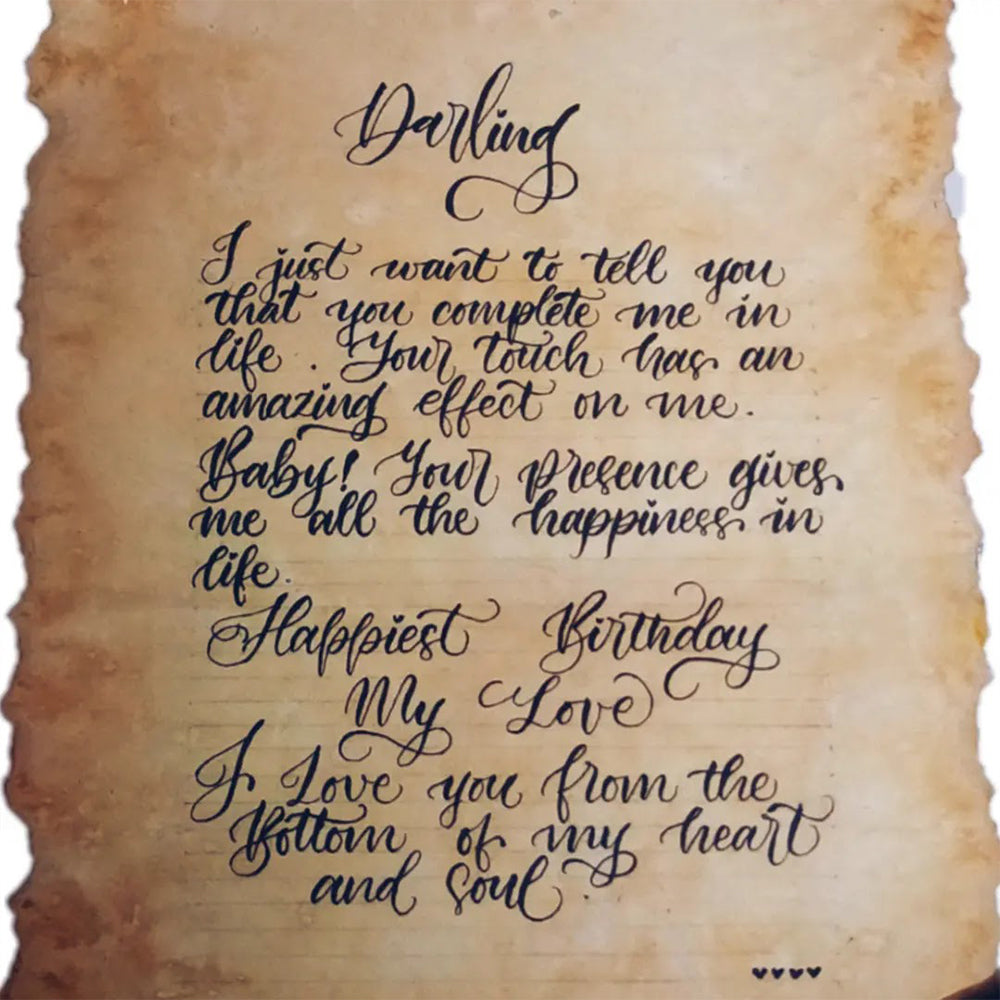 Darling
I just want to tell you
that you complete me in
life . Your touch has an
amazing effect on me.
Baby! Your presence gives
me all the happiness in
life.
Happiest Birthday
My Love
I Love you from the
Bottom of my heart
and Soul.
♥♥♥♥